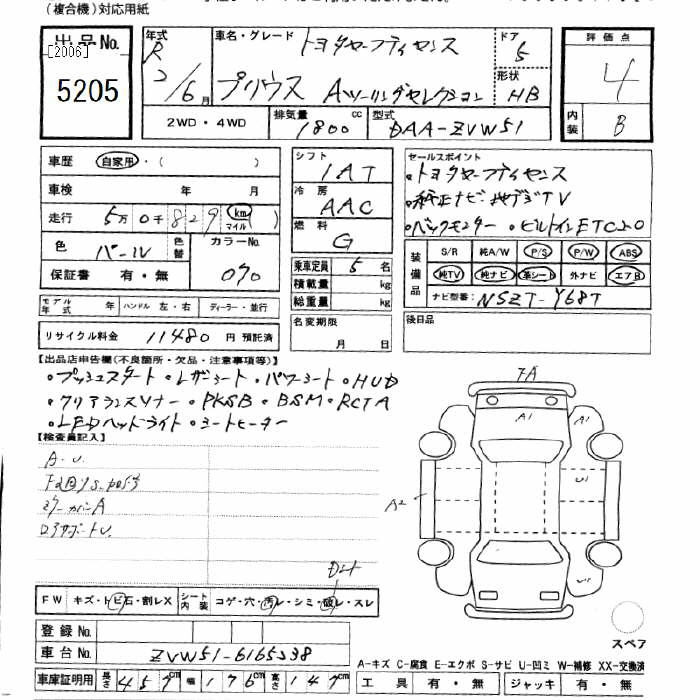 (複合機)対応用紙
出品No. [2006] 5205
年式 R 2/6月
車名・グレード トヨタセーフティセンス
プリウス Aツーリングセレクション
ドア 5
形状 HB
評価点 4
内装 B
2WD・4WD 排気量 1800cc 型式 DAA-ZVW51
車歴 自家用・( )
車検 年 月
走行 5万0千829 km マイル
色 パール 色替 カラーNo. 070
保証書 有・無
シフト 1AT
冷房 AAC
燃料 G
乗車定員 5名
積載量 kg
総重量 kg
セールスポイント
・トヨタセーフティセンス
・純正ナビ・地デジTV
・バックモニター・ビルトインETC2.0
装備品 S/R 純A/W P/S P/W ABS
純TV 純ナビ 革シート 外ナビ エアB
ナビ型番: NSZT-Y68T
モデル年式 年 ハンドル 左・右 ディーラー・並行
リサイクル料金 11480円 預託済
名変期限 月 日
後日品
【出品店申告欄(不良箇所・欠品・注意事項等)】
・プッシュスタート・レザーシート・パワーシート・HUD
・クリアランスソナー・PKSB・BSM・RCTA
・LEDヘッドライト・シートヒーター
【検査員記入】
A・U
ミラーカバーA
FA
A1
A1
U1
A2
U1
FW キズ・トビ石・割レX シート内装 コゲ・穴・汚レ・シミ・破レ・スレ
登録No.
車台No. ZVW51-6165338
車庫証明用 長さ 457cm 幅 176cm 高さ 147cm
スペア
A-キズ C-腐食 E-エクボ S-サビ U-凹ミ W-補修 XX-交換済
工具 有・無 ジャッキ 有・無